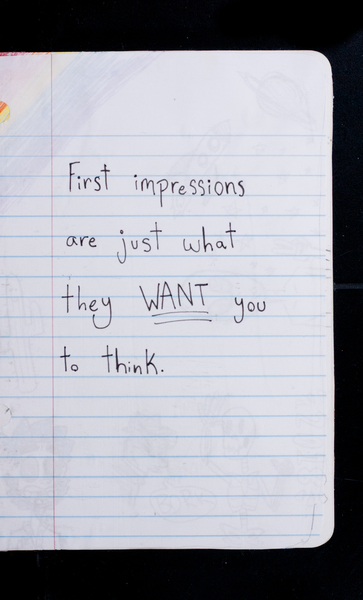 First impressions
are just what
they WANT you
to think.